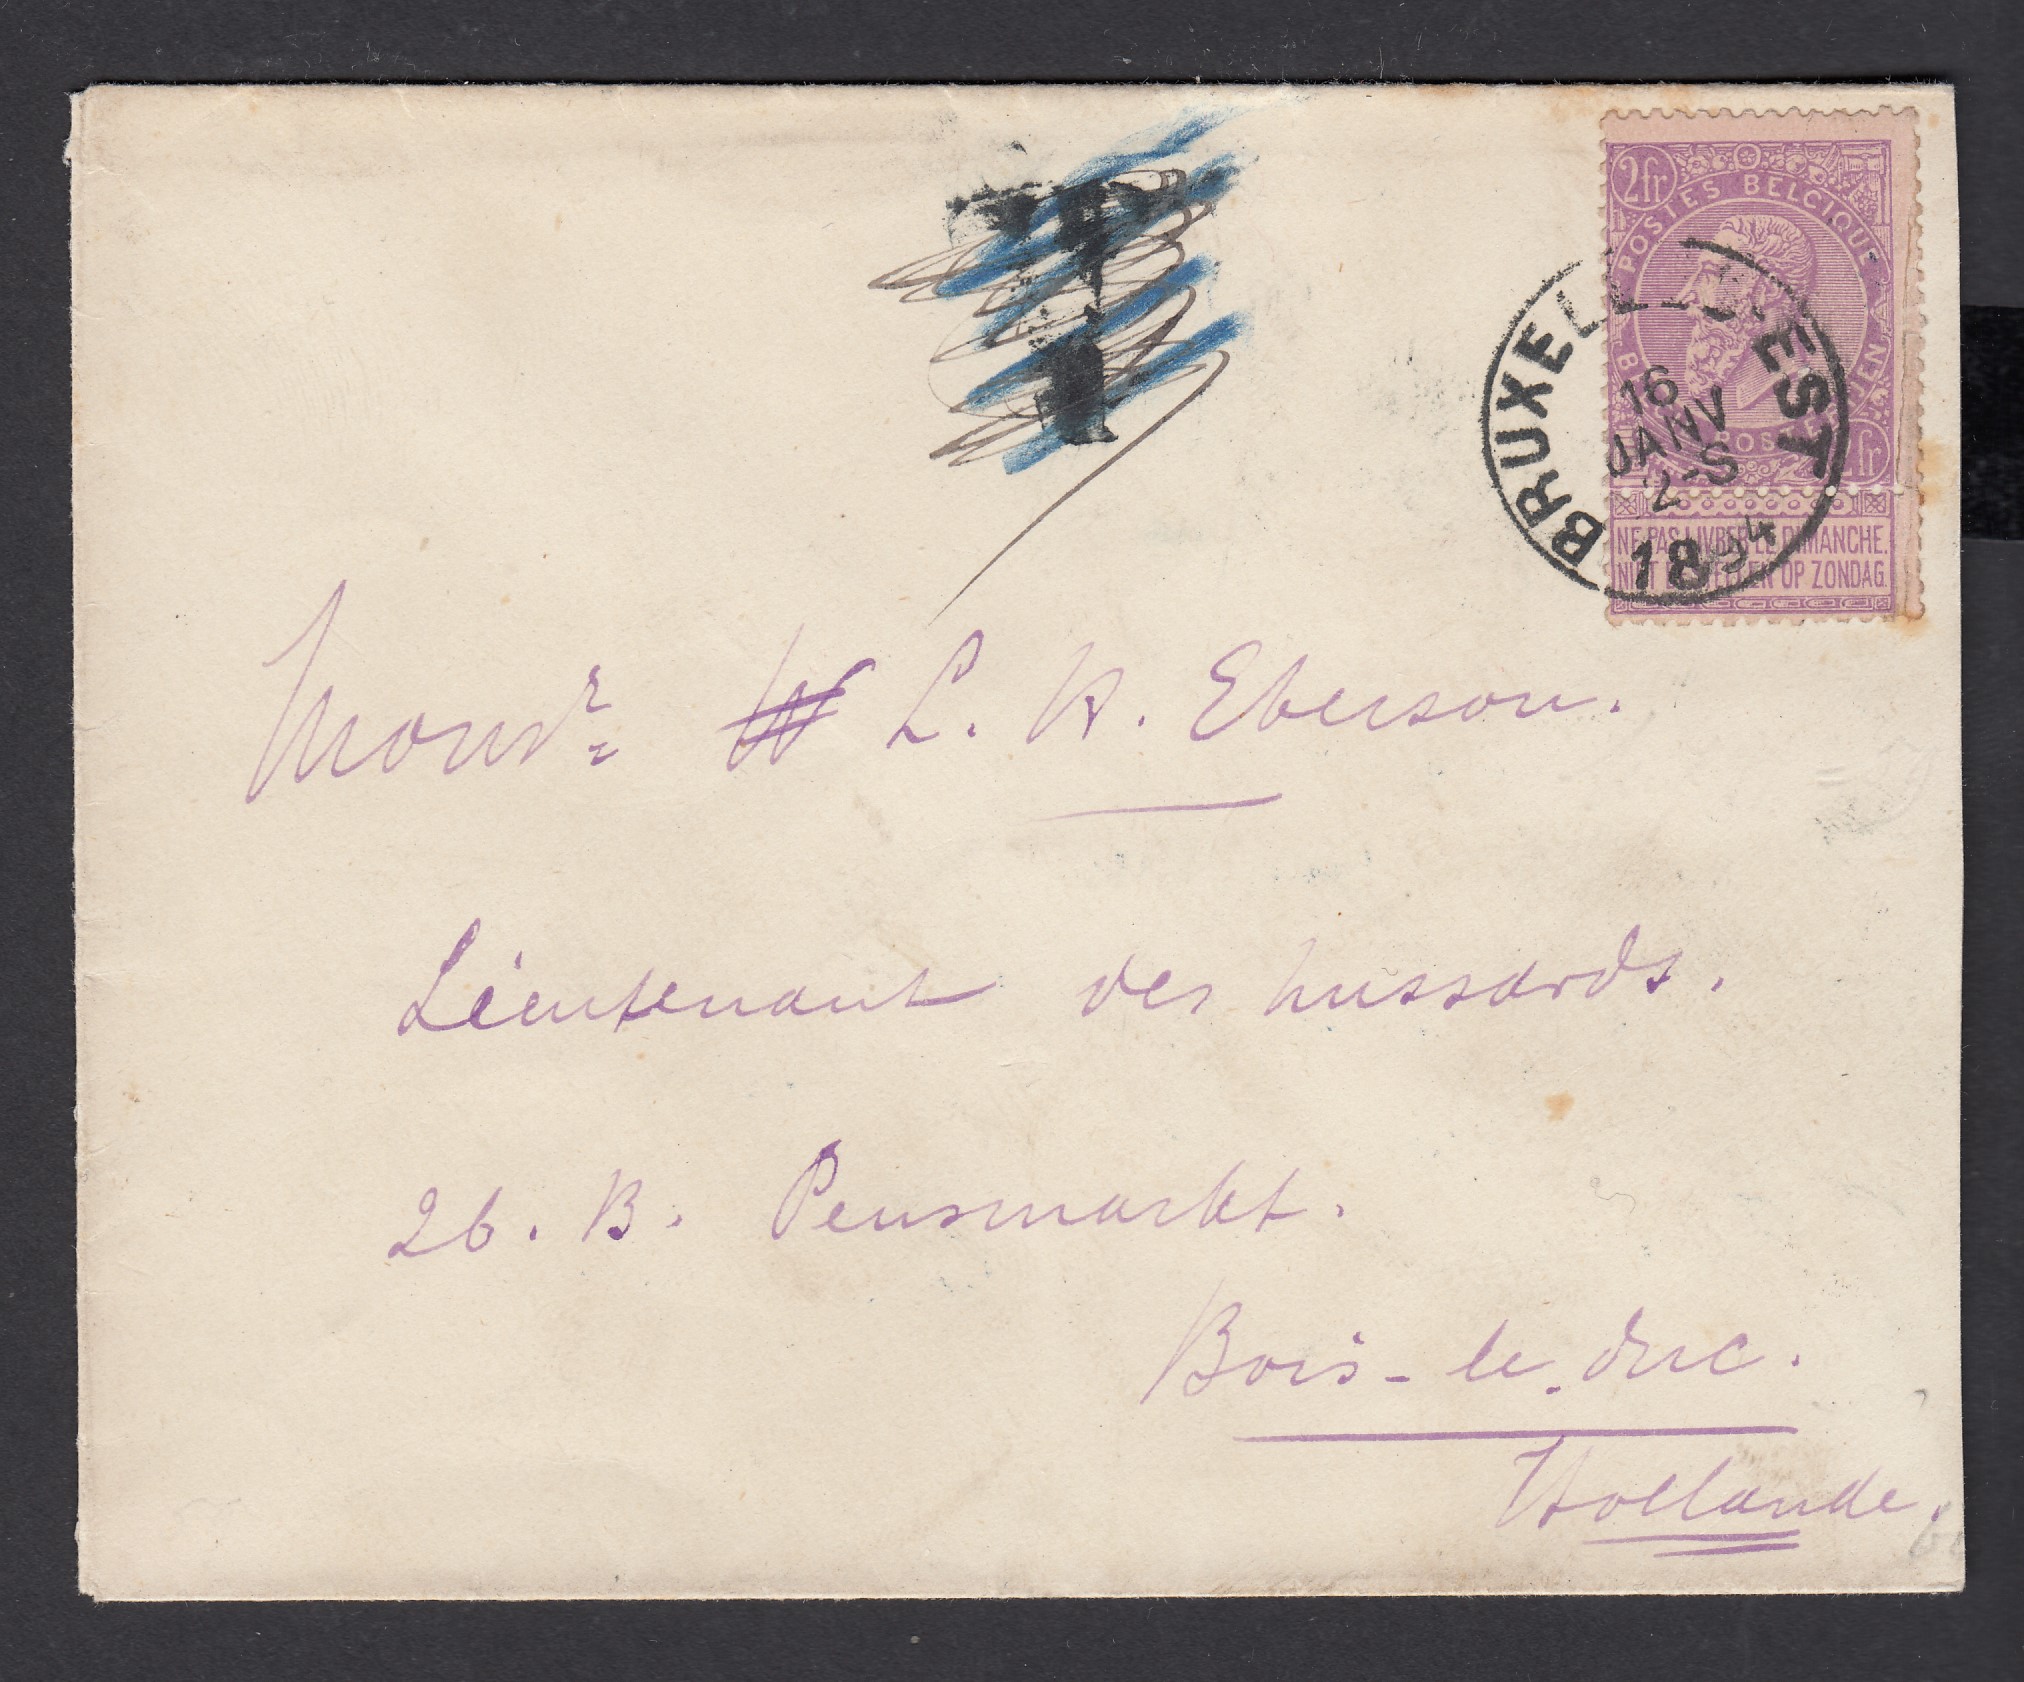 T
2fr
POSTES BELGIQUE
2fr
NE PAS LIVRER LE DIMANCHE.
NIET BESTELLEN OP ZONDAG.
BRUXELLES-EST
16
JANV
2-S
1894
Monsr. W L. A. Eberson.
Lieutenant des hussards.
26. B. Pensmarkt.
Bois-le-duc.
Hollande.